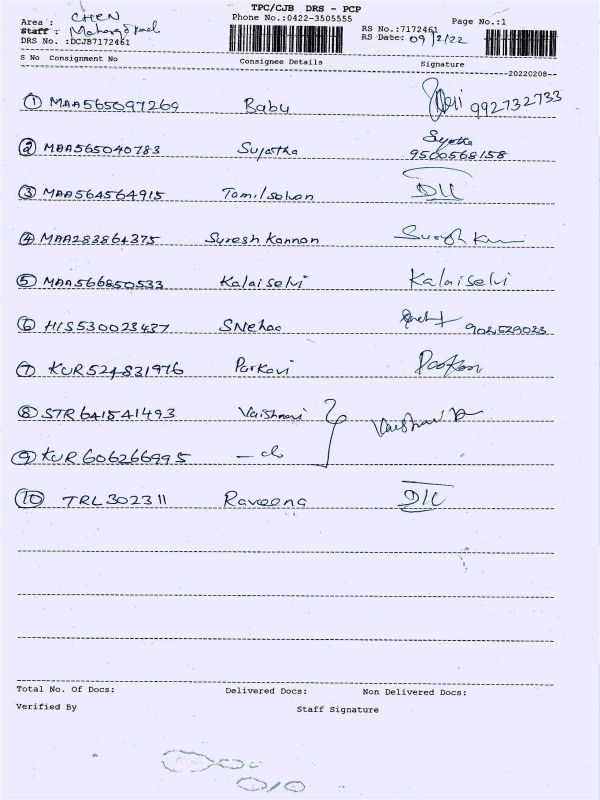 TPC/CJB DRS - PCP
Area : CHEN Phone No.:0422-3505555 RS No.:7172461 Page No.:1
Staff : RS Date: 09/2/22
DRS No. :DCJB7172461
S No Consignment No Consignee Details Signature
20220208
1 MAA565097269 Babu 992732733
2 MAA565040783 Sujatha Sujatha 9500568158
3 MAA564564915 Tamilselvan
4 MAA283864375 Suresh Kannan Suresh
5 MAA566850533 Kalaiselvi Kalaiselvi
6 HIS530023437 SNehaa
7 KUR524831976 Parkavi
8 STR641541493 Vaishnavi Vaishnavi
9 KUR606266995 — do
10 TRL302311 Raveena
Total No. Of Docs: Delivered Docs: Non Delivered Docs:
Verified By Staff Signature